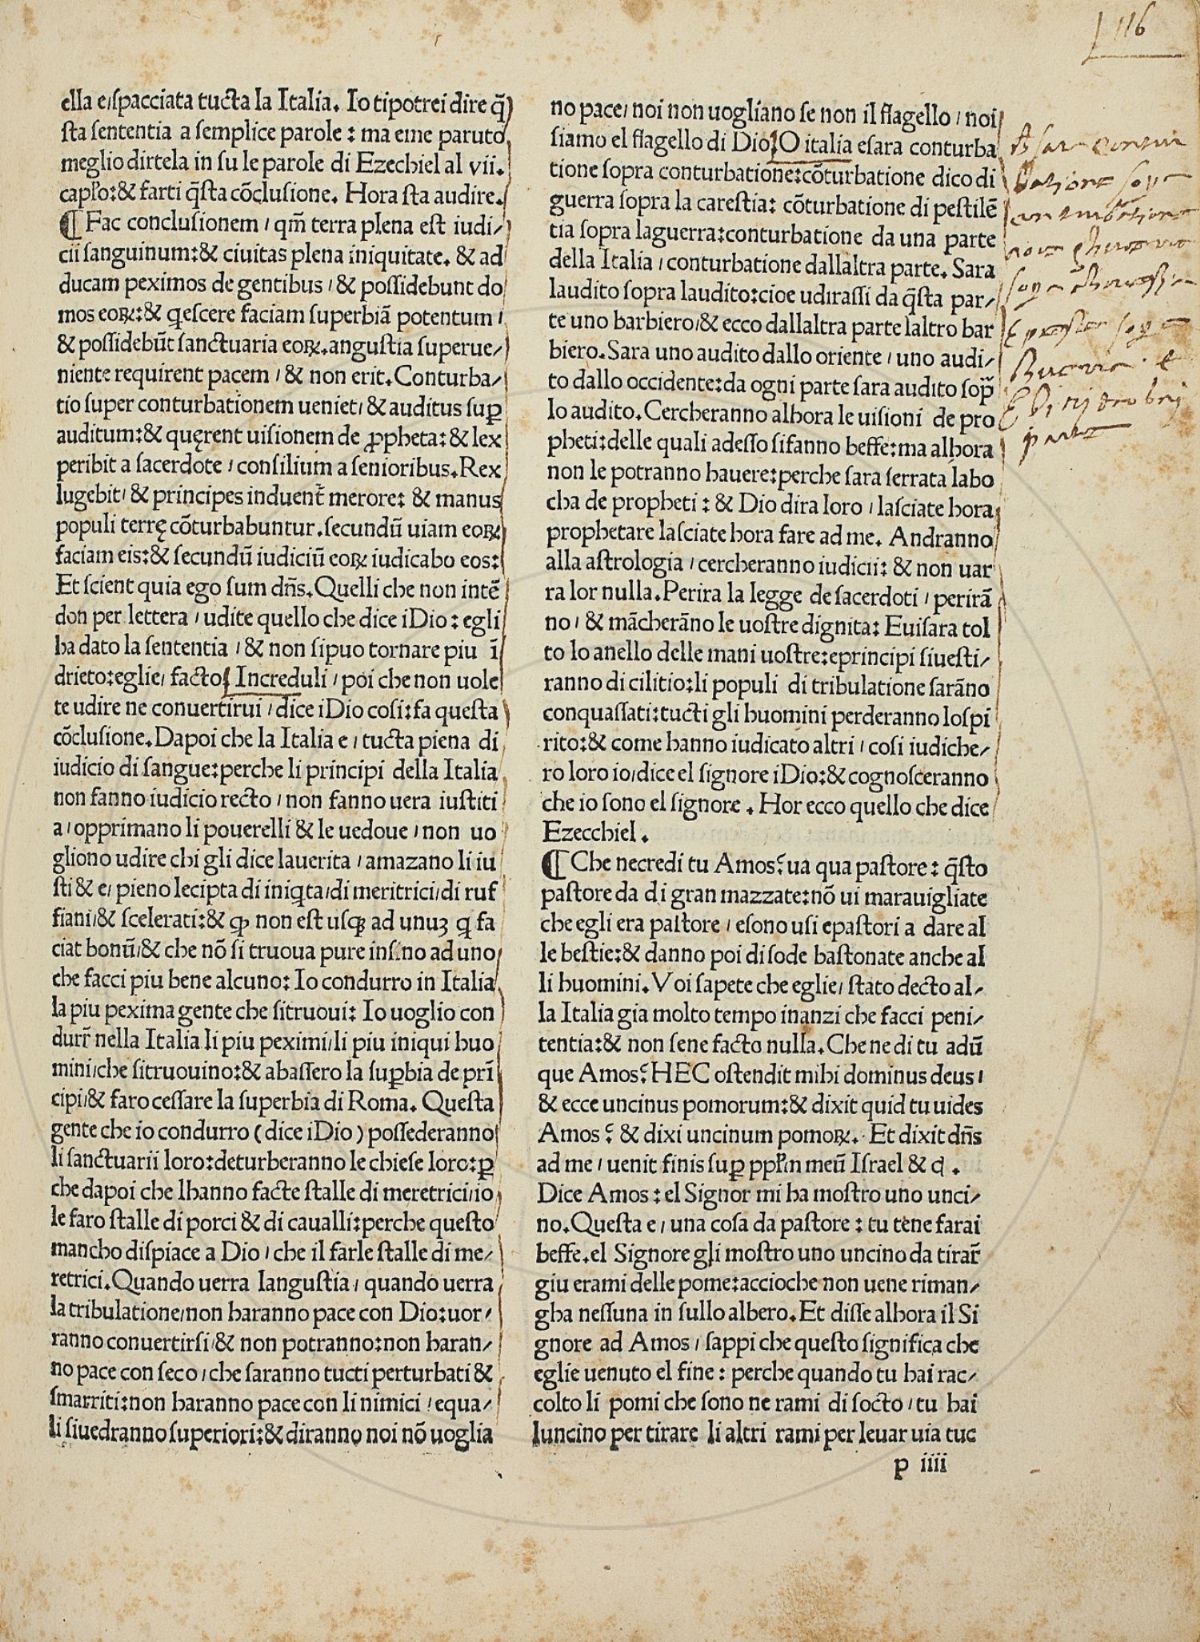 116
ella e/spacciata tucta la Italia. Io tipotrei dire q̃
sta sententia a semplice parole : ma eme paruto
meglio dirtela in su le parole di Ezechiel al vii.
capło:& farti q̃sta cõclusione. Hora sta audire.
¶ Fac conclusionem / qm̃ terra plena est iudi/
cii sanguinum:& ciuitas plena iniquitate. & ad
ducam peximos de gentibus / & possidebunt do
mos eoꝝ:& q̇escere faciam superbiã potentum /
& possidebũt sanctuaria eoꝝ.angustia superue/
niente requirent pacem / & non erit. Conturba/
tio super conturbationem ueniet/ & auditus suꝑ
auditum:& quęrent uisionem de ꝓpheta: & lex
peribit a sacerdote / consilium a senioribus. Rex
lugebit/ & principes induent̃ merore: & manus
populi terrę cõturbabuntur. secundũ uiam eoꝝ
faciam eis:& secundũ iudiciũ eoꝝ iudicabo eos:
Et scient quia ego sum dñs. Quelli che non intẽ
don per lettera / udite quello che dice iDio : egli
ha dato la sententia / & non sipuo tornare piu ĩ
drieto:eglie/ facto Increduli / poi che non uole
te udire ne conuertirui / dice iDio cosi:fa questa
cõclusione. Dapoi che la Italia e / tucta piena di
iudicio di sangue:perche li principi della Italia
non fanno iudicio recto / non fanno uera iustiti
a / opprimano li pouerelli & le uedoue / non uo
gliono udire chi gli dice lauerita / amazano li iu
sti & e/ pieno lecipta di iniq̇ta/di meritrici/di ruf
fiani/& scelerati:& ꝙ non est usqꝫ ad unuꝫ q̇ fa
ciat bonũ/& che nõ si truoua pure insino ad uno
che facci piu bene alcuno: Io condurro in Italia
la piu pexima gente che sitruoui: Io uoglio con
durr̃ nella Italia li piu peximi/li piu iniqui huo
mini/che sitruouino:& abassero la suꝑbia de prĩ
cipi/& faro cessare la superbia di Roma. Questa
gente che io condurro (dice iDio) possederanno
li sanctuarii loro:deturberanno le chiese loro:ꝑ
che dapoi che lhanno facte stalle di meretrici/io
le faro stalle di porci & di caualli:perche questo
mancho dispiace a Dio / che il farle stalle di me/
retrici. Quando uerra langustia / quando uerra
la tribulatione/non haranno pace con Dio:uor/
ranno conuertirsi/& non potranno:non haran/
no pace con seco / che saranno tucti perturbati &
smarriti:non haranno pace con li nimici / equa/
li siuedranno superiori:& diranno noi nõ uoglia
no pace/ noi non uogliano se non il flagello / noi
siamo el flagello di Dio O italia esara conturba
tione sopra conturbatione:cõturbatione dico di
guerra sopra la carestia: cõturbatione di pestilẽ
tia sopra laguerra:conturbatione da una parte
della Italia / conturbatione dallaltra parte. Sara
laudito sopra laudito:cioe udirassi da q̃sta par/
te uno barbiero/& ecco dallaltra parte laltro bar
biero. Sara uno audito dallo oriente / uno audi/
to dallo occidente:da ogni parte sara audito sop̃
lo audito. Cercheranno alhora le uisioni de pro
pheti:delle quali adesso sifanno beffe:ma alhora
non le potranno hauere:perche sara serrata labo
cha de propheti : & Dio dira loro / lasciate hora
prophetare lasciate hora fare ad me. Andranno
alla astrologia / cercheranno iudicii: & non uar
ra lor nulla. Perira la legge de sacerdoti / perirã
no / & mãcherãno le uostre dignita: Euisara tol
to lo anello delle mani uostre:eprincipi siuesti/
ranno di cilitio:li populi di tribulatione sarãno
conquassati:tucti gli huomini perderanno lospi
rito:& come hanno iudicato altri / cosi iudiche/
ro loro io/dice el signore iDio:& cognosceranno
che io sono el signore . Hor ecco quello che dice
Ezecchiel .
¶ Che necredi tu Amos? ua qua pastore : q̃sto
pastore da di gran mazzate:nõ ui marauigliate
che egli era pastore / esono usi epastori a dare al
le bestie:& danno poi di sode bastonate anche al
li huomini. Voi sapete che eglie/ stato decto al/
la Italia gia molto tempo inanzi che facci peni/
tentia:& non sene facto nulla. Che ne di tu adũ
que Amos? HEC ostendit mihi dominus deus /
& ecce uncinus pomorum:& dixit quid tu uides
Amos ? & dixi uncinum pomoꝝ. Et dixit dñs
ad me / uenit finis suꝑ pp̃lm meũ Israel & c̃ .
Dice Amos : el Signor mi ha mostro uno unci/
no. Questa e / una cosa da pastore : tu tene farai
beffe. el Signore gli mostro uno uncino da tirar̃
giu erami delle pome:accioche non uene riman/
gha nessuna in sullo albero. Et disse alhora il Si
gnore ad Amos / sappi che questo significa che
eglie uenuto el fine : perche quando tu hai rac/
colto li pomi che sono ne rami di socto / tu hai
luncino per tirare li altri rami per leuar uia tuc
p iiii